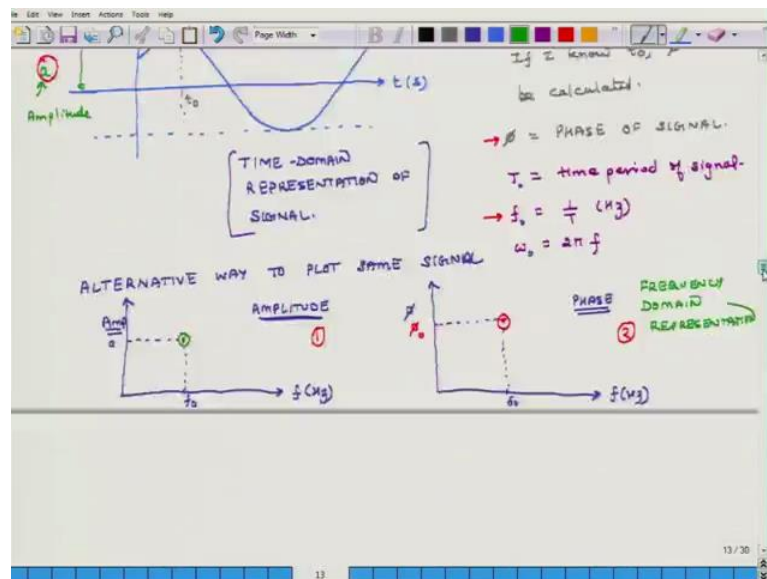 File Edit View Insert Actions Tools Help
Page Width
B
a
Amplitude
t₀
t (s)
If I know t₀,
be calculated.
→ ø = PHASE OF SIGNAL.
T₀ = time period of signal.
→ f₀ = 1/T (Hz)
ω₀ = 2π f
TIME-DOMAIN
REPRESENTATION OF
SIGNAL.
ALTERNATIVE WAY TO PLOT SAME SIGNAL
Amp
a
AMPLITUDE
1
f₀
f(Hz)
ø
ø₀
PHASE
2
f₀
f(Hz)
FREQUENCY
DOMAIN
REPRESENTATION
13 / 30
13